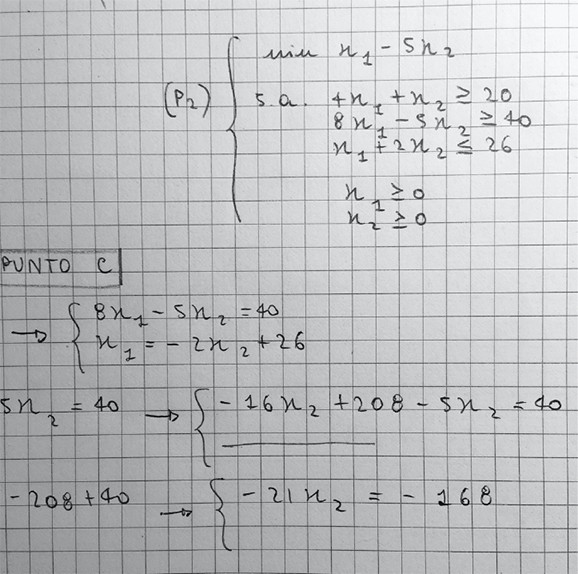 min x₁ - 5x₂
(P₂) s.a. 4x₁ + x₂ ≥ 20
8x₁ - 5x₂ ≥ 40
x₁ + 2x₂ ≤ 26
x₁ ≥ 0
x₂ ≥ 0
PUNTO C
→ { 8x₁ - 5x₂ = 40
x₁ = - 2x₂ + 26
5x₂ = 40 → { - 16x₂ + 208 - 5x₂ = 40
- 208 + 40 → { - 21x₂ = - 168